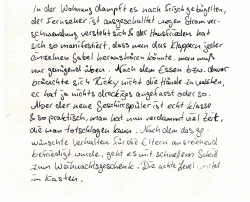 In der Wohnung dampft es nach frisch gebügelten,
der Fernseher ist ausgeschaltet wegen Stromver-
schwendung versteht sich & der Hausfrieden hat
sich so manifestiert, dass man das Klappern jeder
einzelnen Gabel heraushören könnte, man muß
nur genügend üben. Nach dem Essen bzw. davor
bräuchte sich Ricky nicht die Hände zu waschen,
er hat ja nichts dreckiges angefasst oder so.
Aber der neue Geschirrspüler ist echt klasse
& so praktisch, man hat nun verdammt viel Zeit,
die man totschlagen kann. Nach dem das ge-
wünschte Verhalten für die Eltern ausreichend
befriedigt wurde, geht es mit schnellem Schritt
zum Weihnachtsgeschenk. Die achte Level
im Kasten.